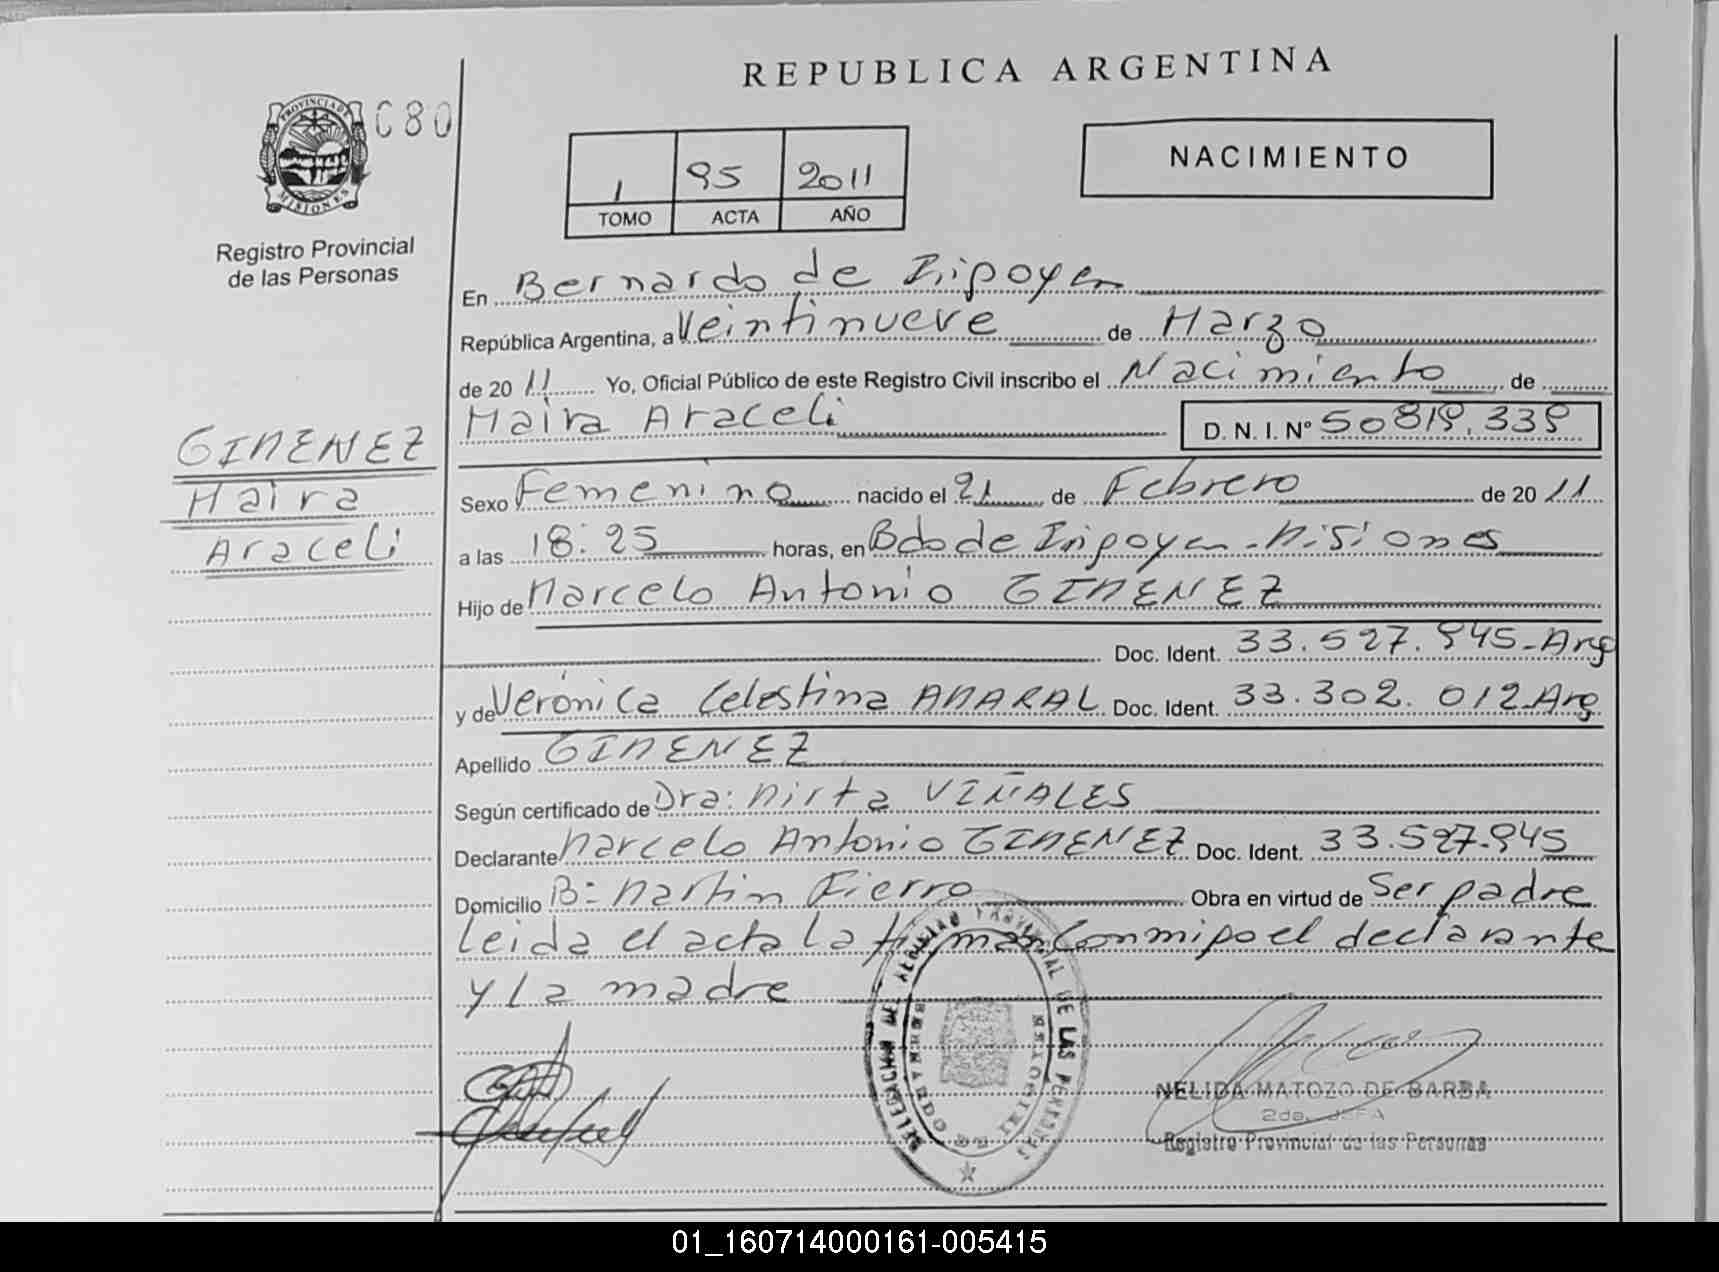 REPUBLICA ARGENTINA
PROVINCIA DE
MISIONES
080
Registro Provincial
de las Personas
1 95 2011
TOMO ACTA AÑO
NACIMIENTO
En Bernardo de Irigoyen
República Argentina, a Veintinueve de Marzo
de 2011 Yo, Oficial Público de este Registro Civil inscribo el Nacimiento de
Maira Araceli D. N. I. Nº 50819.339
GIMENEZ
Maira
Araceli
Sexo Femenino nacido el 21 de Febrero de 2011
a las 18:25 horas, en Bdo de Irigoyen - Misiones
Hijo de Marcelo Antonio GIMENEZ
Doc. Ident. 33.527.945-Arg
y de Verónica Celestina AMARAL Doc. Ident. 33.302.012 Arg
Apellido GIMENEZ
Según certificado de Dra: Mirta VIÑALES
Declarante Marcelo Antonio GIMENEZ Doc. Ident. 33.527.945
Domicilio B: Martin Fierro Obra en virtud de Ser padre
Leida el acta la firman Conmigo el declarante
y La madre
DELEGACION DE REGISTRO PROVINCIAL DE LAS PERSONAS
BERNARDO DE IRIGOYEN
MISIONES
NELIDA MATOZO DE BARBA
2da. JEFA
Registro Provincial de las Personas
01_160714000161-005415